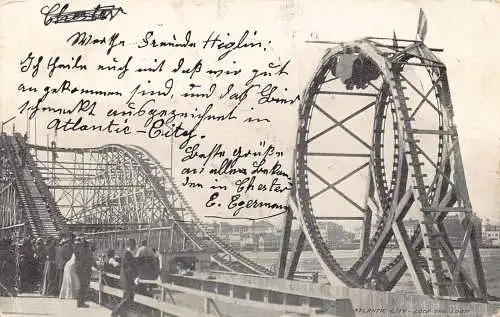 Chester
Werthe Freunde Higlin:
Ich theile euch mit daß wir gut
angekommen sind, und das Bier
schmeckt ausgezeichnet in
Atlantic-City.
Beste Grüße
an alle Bekan
den in Chester
E. Egermann
ATLANTIC CITY - LOOP THE LOOP